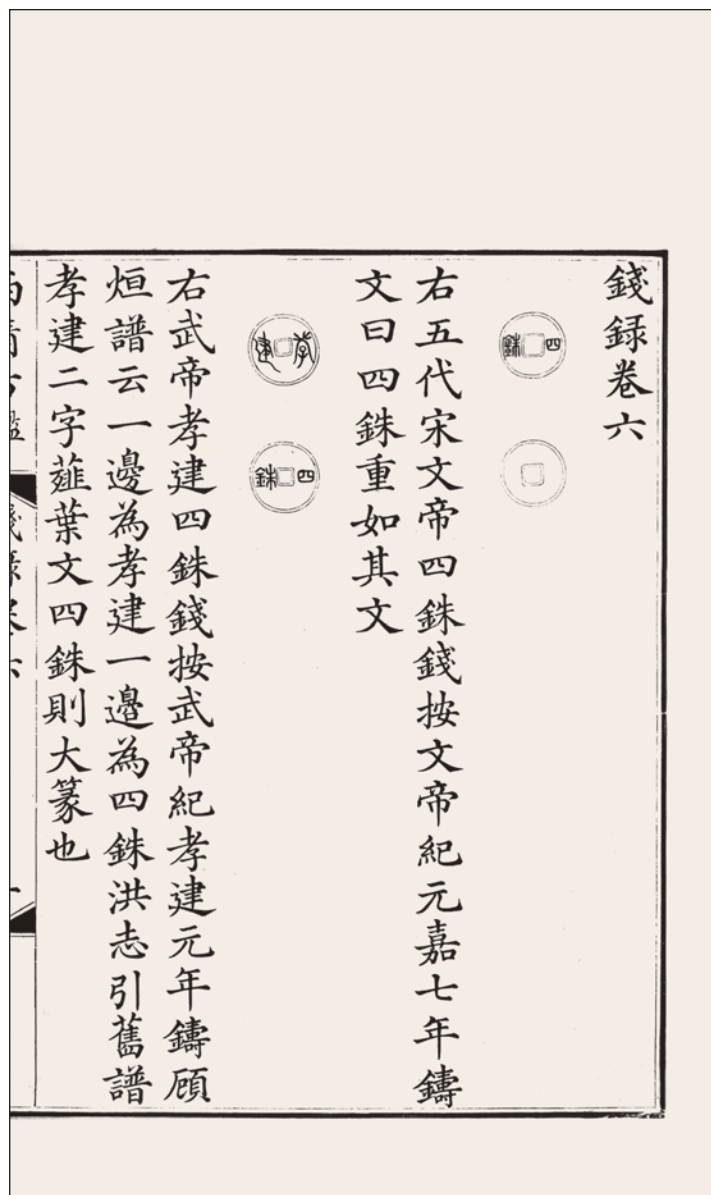 錢録卷六
四銖
右五代宋文帝四銖錢按文帝紀元嘉七年鑄
文曰四銖重如其文
孝建
四銖
右武帝孝建四銖錢按武帝紀孝建元年鑄顧
烜譜云一邊為孝建一邊為四銖洪志引舊譜
孝建二字薤葉文四銖則大篆也